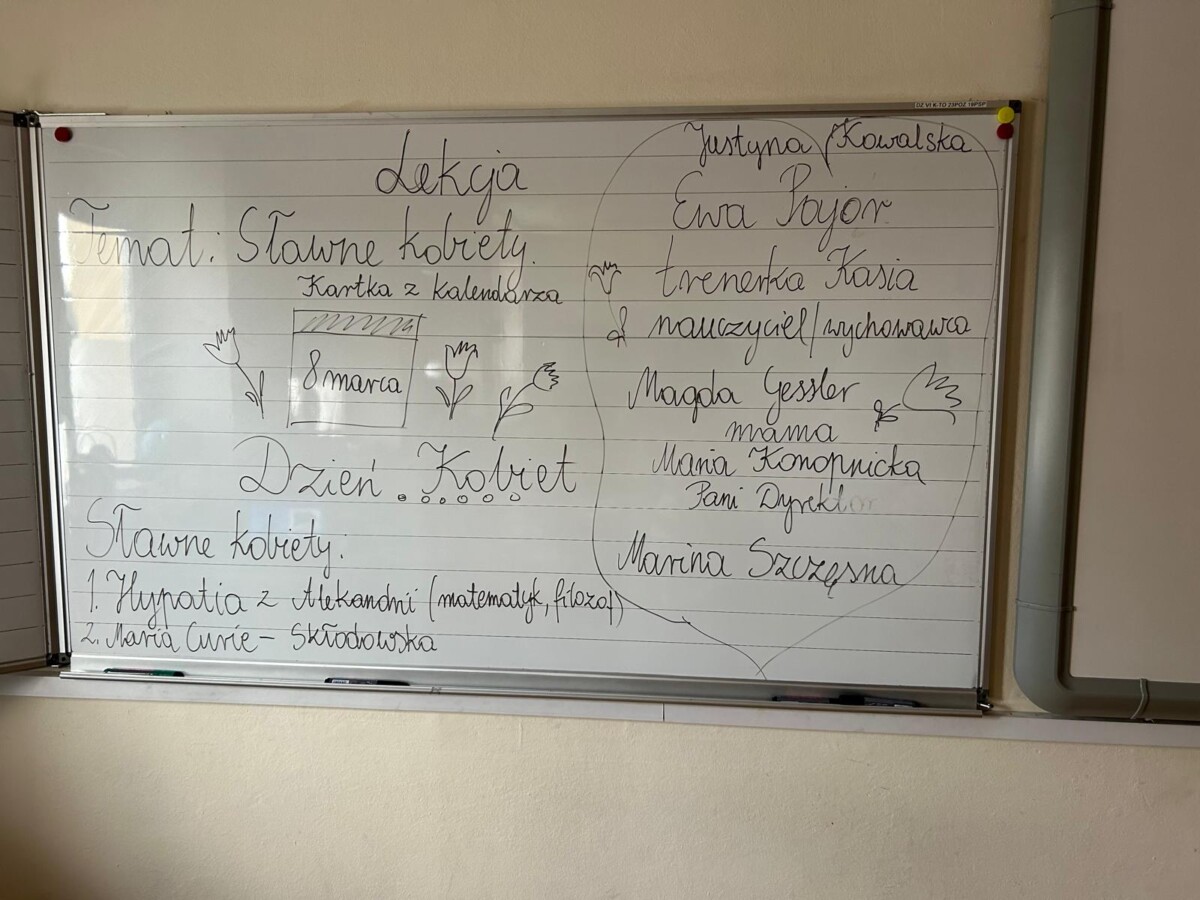 Lekcja
Temat: Sławne kobiety.
Kartka z kalendarza
8 marca
Dzień Kobiet
Sławne kobiety:
1. Hypatia z Aleksandrii (matematyk, filozof)
2. Maria Curie - Skłodowska
Justyna Kowalska
Ewa Pajor
trenerka Kasia
nauczyciel/wychowawca
Magda Gessler
mama
Maria Konopnicka
Pani Dyrektor
Marina Szczęsna